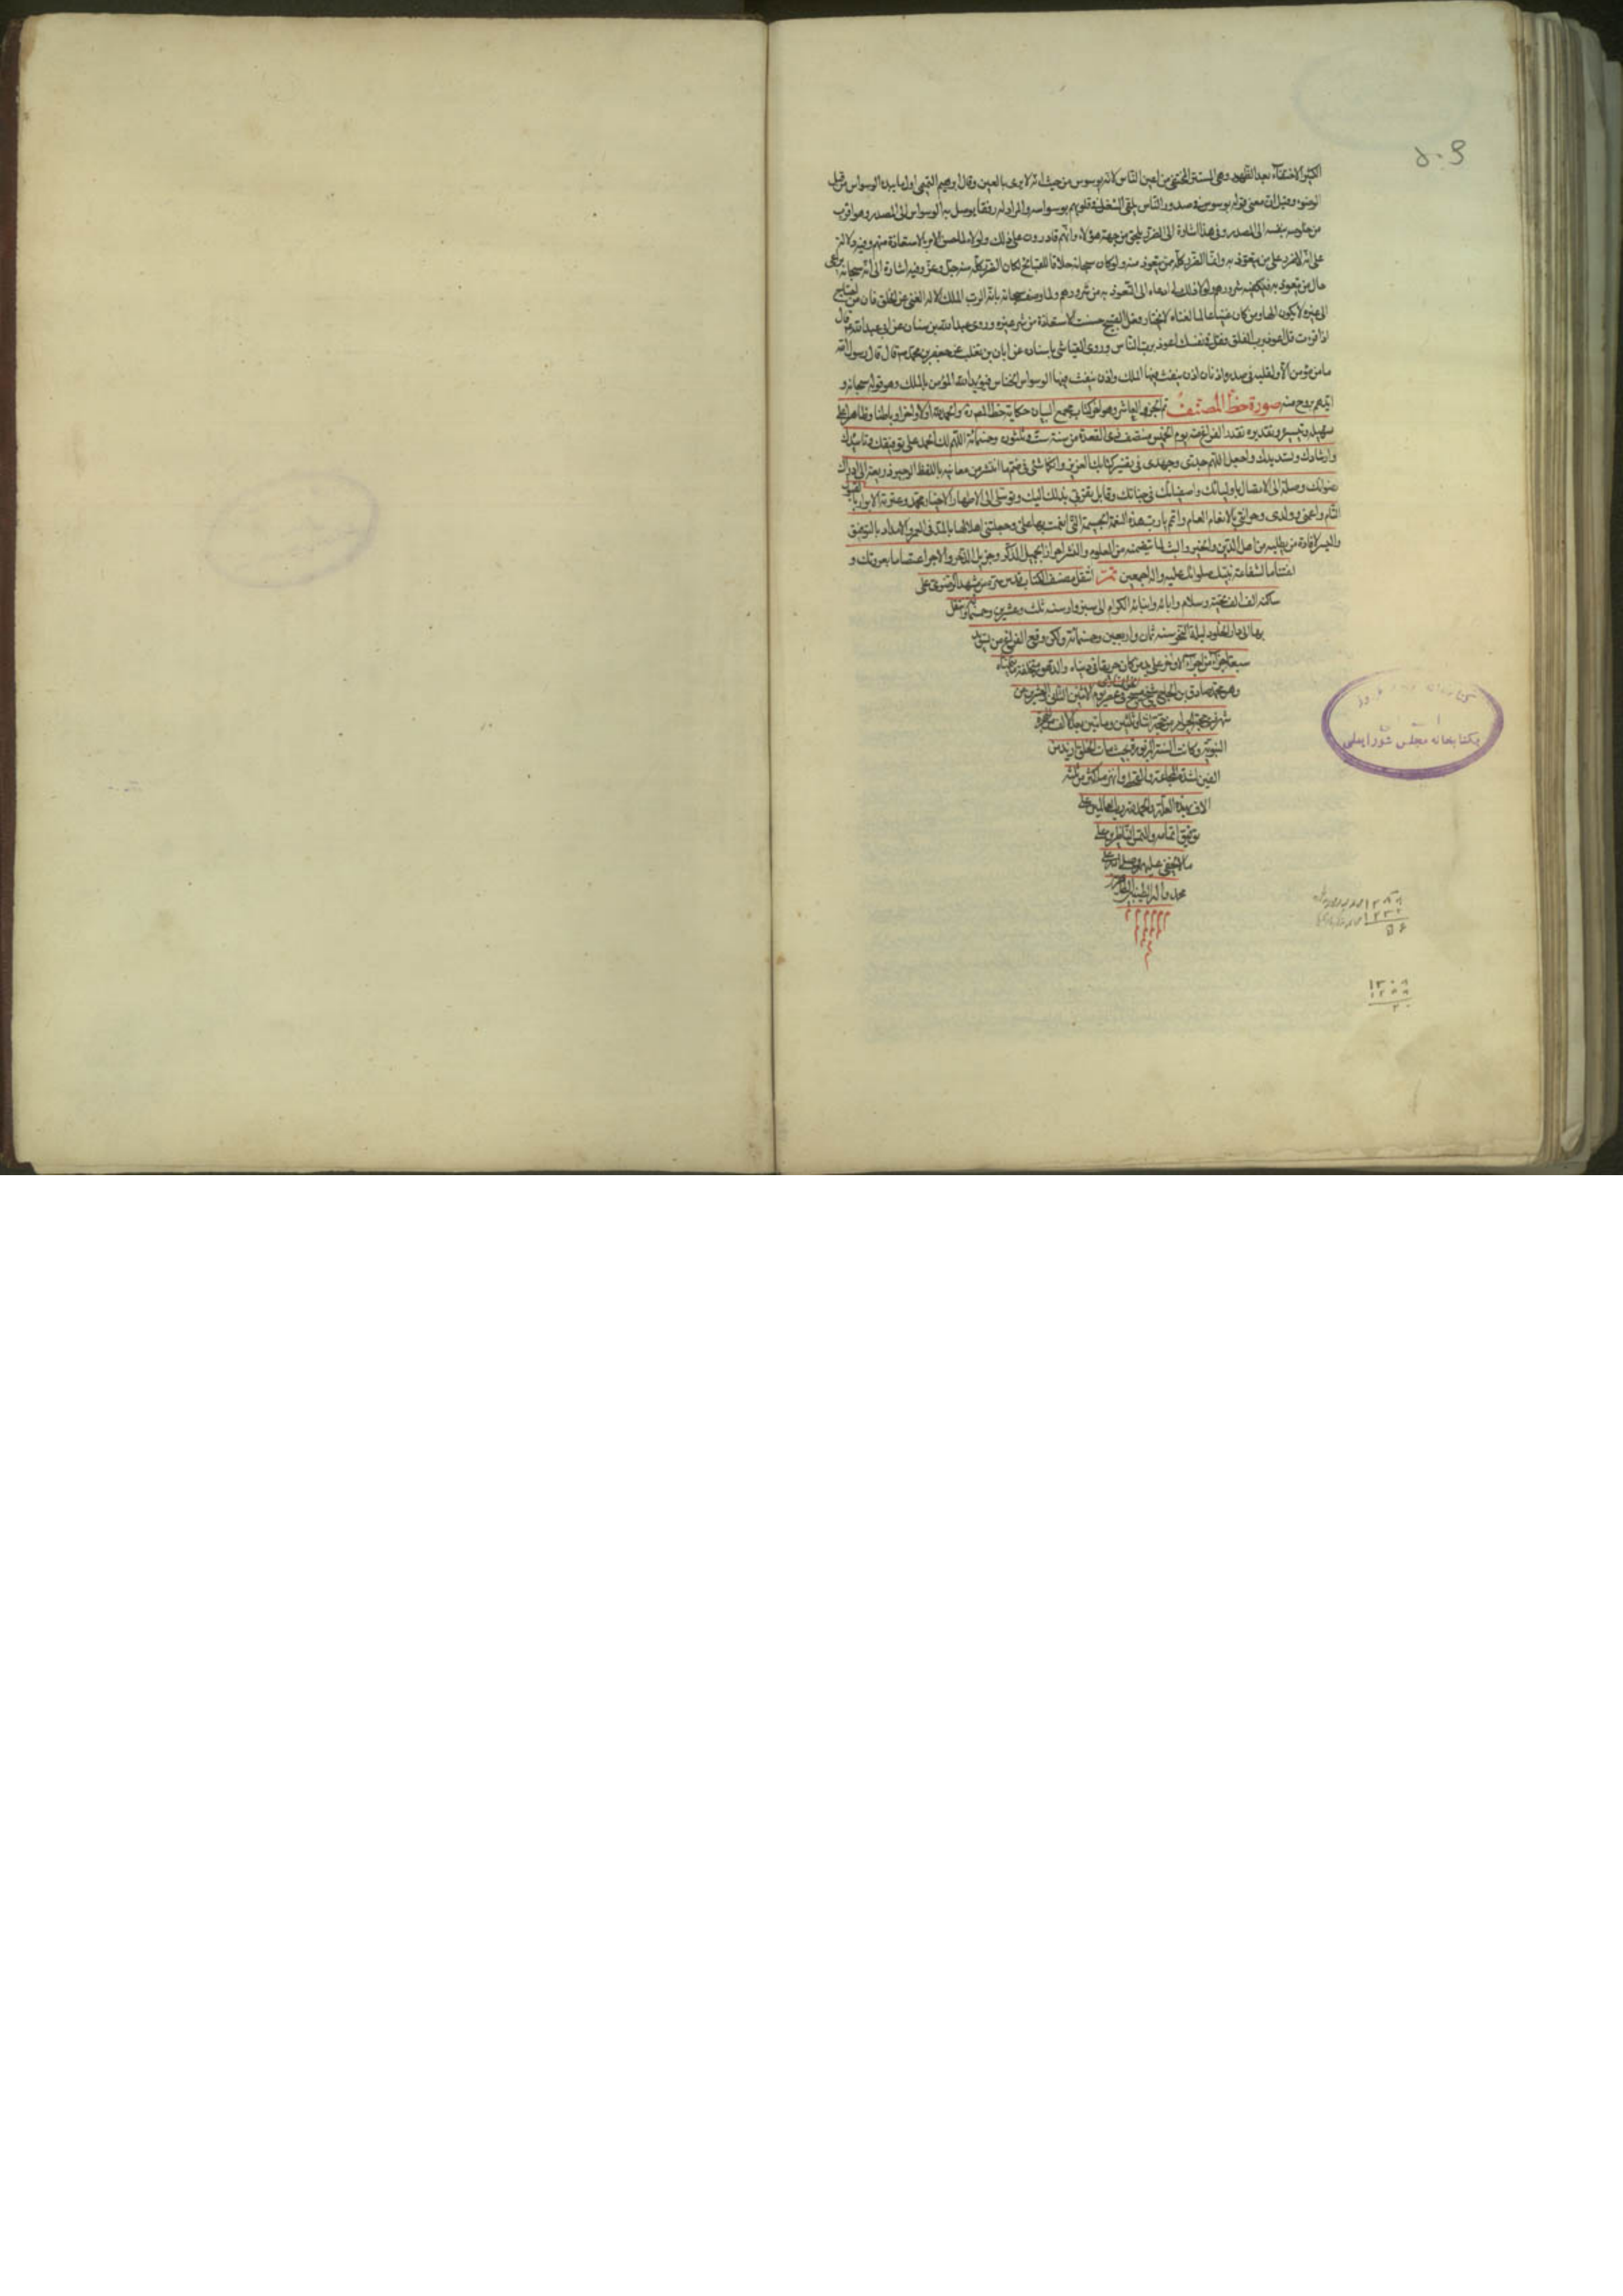 ٥٠٩
الكثير الاختفاء بعد الظهور وهو المستتر المختفي من اعين الناس لانه يوسوس من حيث انه لا يرى بالعين وقال ابرهيم التيمي اول ما يبدء الوسواس من قبل
الوضوء وقيل ان معنى قوله يوسوس في صدور الناس يلقى الشغل في قلوبهم بوسواسه والمراد له رفقا يوصل به الوسواس الى الصدر وهو اقرب
من خلوصه بنفسه الى الصدر وفي هذا اشارة الى ان الضرر يلحق من جهة هؤلاء وانهم قادرون على ذلك ولولاه لما حسن الامر بالاستعاذة منهم وفيه دلالة
على انه لا ضرر على من يتعوذ به وانما الضرر كله ممن يتعوذ منه ولو كان سبحانه خلاقا للقبايح لكان الضرر كله منه جل وعز وفيه اشارة الى انه سبحانه يراعي
حال من يتعوذ به فيكفيه شرورهم ولولا ذلك لما دعاه الى التعوذ به من شرورهم ولما وصف سبحانه بانه الرب الملك الاله الغني عن الخلق فان من احتاج
الى غيره لا يكون الها ومن كان غنيا عالما لغناه لا يختار فعل القبيح حسنت الاستعاذة من شر غيره وروى عبد الله بن سنان عن ابي عبد الله قال
اذا قرءت قل اعوذ برب الفلق فقل في نفسك اعوذ برب الناس وروى العياشي باسناده عن ابان بن تغلب عن جعفر بن محمد قال قال رسول الله
ما من مؤمن الا ولقلبه في صدره اذنان اذن ينفث فيها الملك واذن ينفث فيها الوسواس الخناس فيؤيد الله المؤمن بالملك وهو قوله سبحانه و
ايدهم بروح منه صورة خط المصنف تم الجزء العاشر وهو اخر كتاب مجمع البيان حكاية خط المصنف والحمد لله اولا واخرا وباطنا وظاهرا على
تسهيله وتيسيره وتقديره فقد الفراغ منه يوم الخميس منتصف ذي القعدة من سنة ست وثلثون وخمسمائة اللهم لك الحمد على توفيقك وتاييدك
وارشادك وتسديدك واجعل اللهم جدي وجهدي في تفسير كتابك العزيز وانكماشي في ضم ما انتشر من معانيه باللفظ الوجيز ذريعة الى ادراك
رضوانك وصلة الى الاتصال باوليائك واصفيائك في جنانك وقابل بقربتي بذلك اليك وتوسلي الى الاطهار الاخيار محمد وعترته الابرار بالقبول
التام واعمني وولدي بالانعام العام واتم يا رب هذه النعمة الجسيمة التي انعمت بها علي وجعلتني اهلا لها بالمد في العمر والامداد بالتوفيق
والتيسير لافادة من يطلبه من اهل الدين والخير والبث لما يتضمنه من العلوم والنشر احرازا لجميل الذكر وجزيل الذخر والاجر اعتصاما بعروتك و
اغتناما لشفاعة نبيك صلواتك عليه واله اجمعين تمت انتقل مصنف الكتاب قدس سره من مشهد الرضوي على
ساكنه الف الف تحية وسلام وابائه وابنائه الكرام الى سبزوار سنة ثلث وعشرين وخمسمائة وانتقل
بها الى دار الخلود ليلة النحر سنة ثمان واربعين وخمسمائة ولكن وقع الفراغ من تسويد
سبعة اجزاء من اجزاء الاواخر على يد من كان
وهو محمد صادق بن الحاجي في عصر يوم الاثنين الثاني والعشرين من
شهر ذي حجة الحرام من حجة اثنا وثلثين وماتين بعد الالف من الهجرة
النبوية وكانت السنة المزبورة بحيث مات الخلق ازيد من
الفين لشدة المجاعة والقحط وانهزم اكثر من ثلثة
الاف بهذه العلة والحمد لله رب العالمين على
توفيق اتمامه والتمس الناظرين على
ما لا يخفى عليهم وصلى الله على
محمد واله الطيبين الطاهرين
كتابخانه مجلس شورايملى
١٢٨٨
١٢٣٢
٥٦
١٣٠٨
١٢٨٨
٢٠